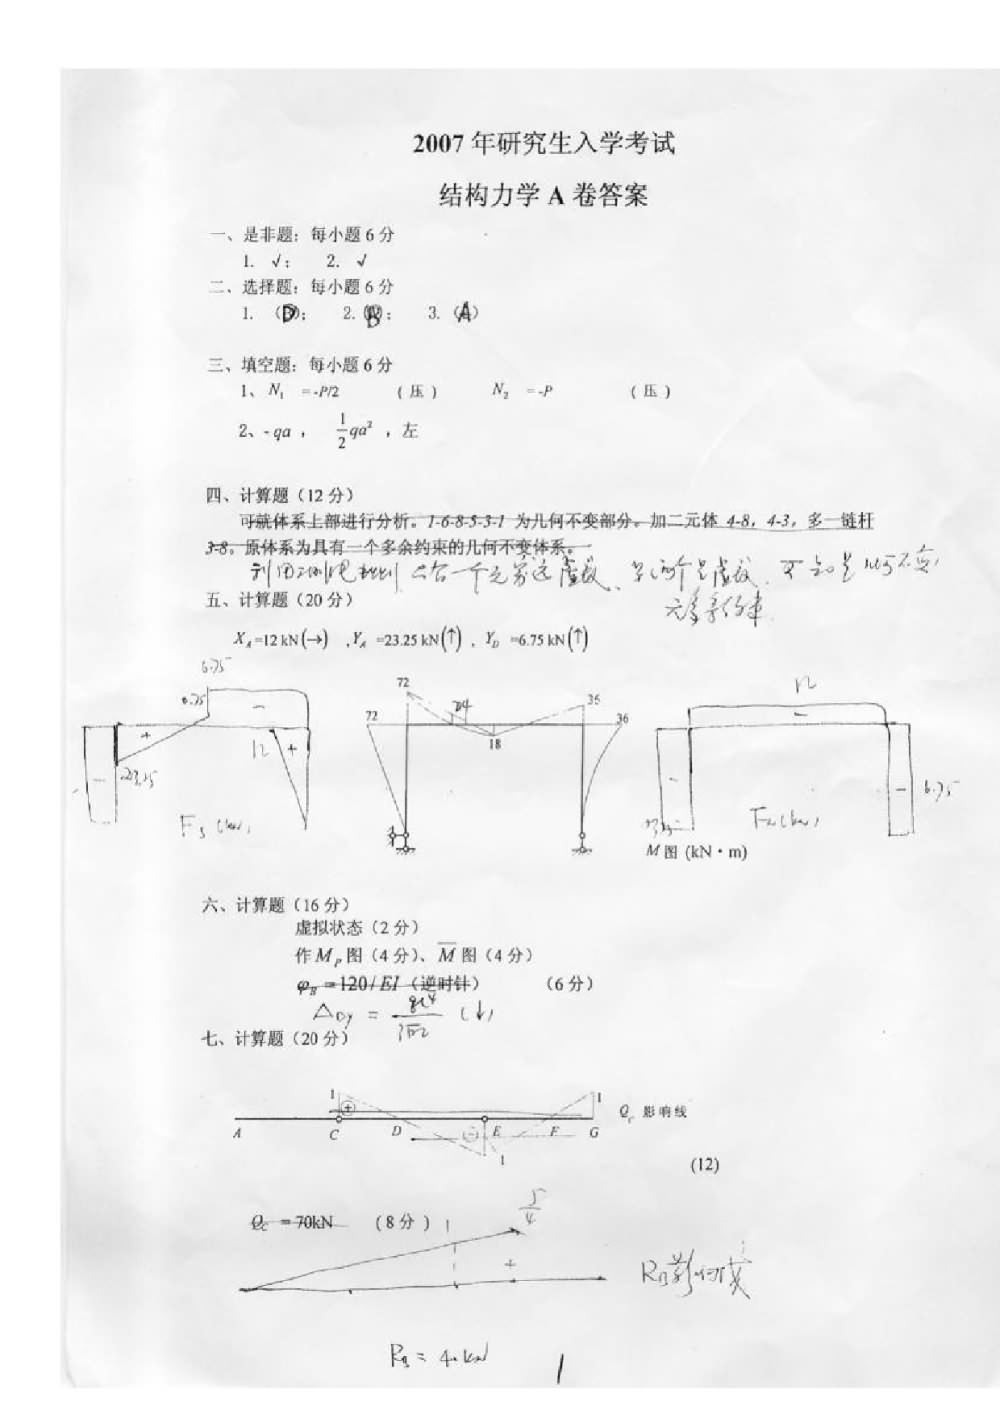 2007 年研究生入学考试
结构力学 A 卷答案
一、是非题：每小题 6 分
1. √； 2. √
二、选择题：每小题 6 分
1. （D）； 2. （B）； 3. （A）
三、填空题：每小题 6 分
1、N₁ =-P/2 （压） N₂ =-P （压）
2、-qa， 1/2 qa²，左
四、计算题（12 分）
可就体系上部进行分析。1-6-8-5-3-1 为几何不变部分。加二元体 4-8，4-3，多一链杆
3-8。原体系为具有一个多余约束的几何不变体系。
五、计算题（20 分）
X_A =12 kN(→)，Y_A =23.25 kN(↑)，Y_D =6.75 kN(↑)
6.75
72
6.75
72
54
18
35
36
12
+
−
23.25
12
+
−
6.75
M 图 (kN·m)
六、计算题（16 分）
虚拟状态（2 分）
作 M_P 图（4 分）、M̄ 图（4 分）
φ_B =120/EI（逆时针） （6 分）
七、计算题（20 分）
1 + 1 Q_C 影响线
A C D − E F G
1
(12)
Q_C =70kN （8 分） 1 5/4
+ R_B影响线
1